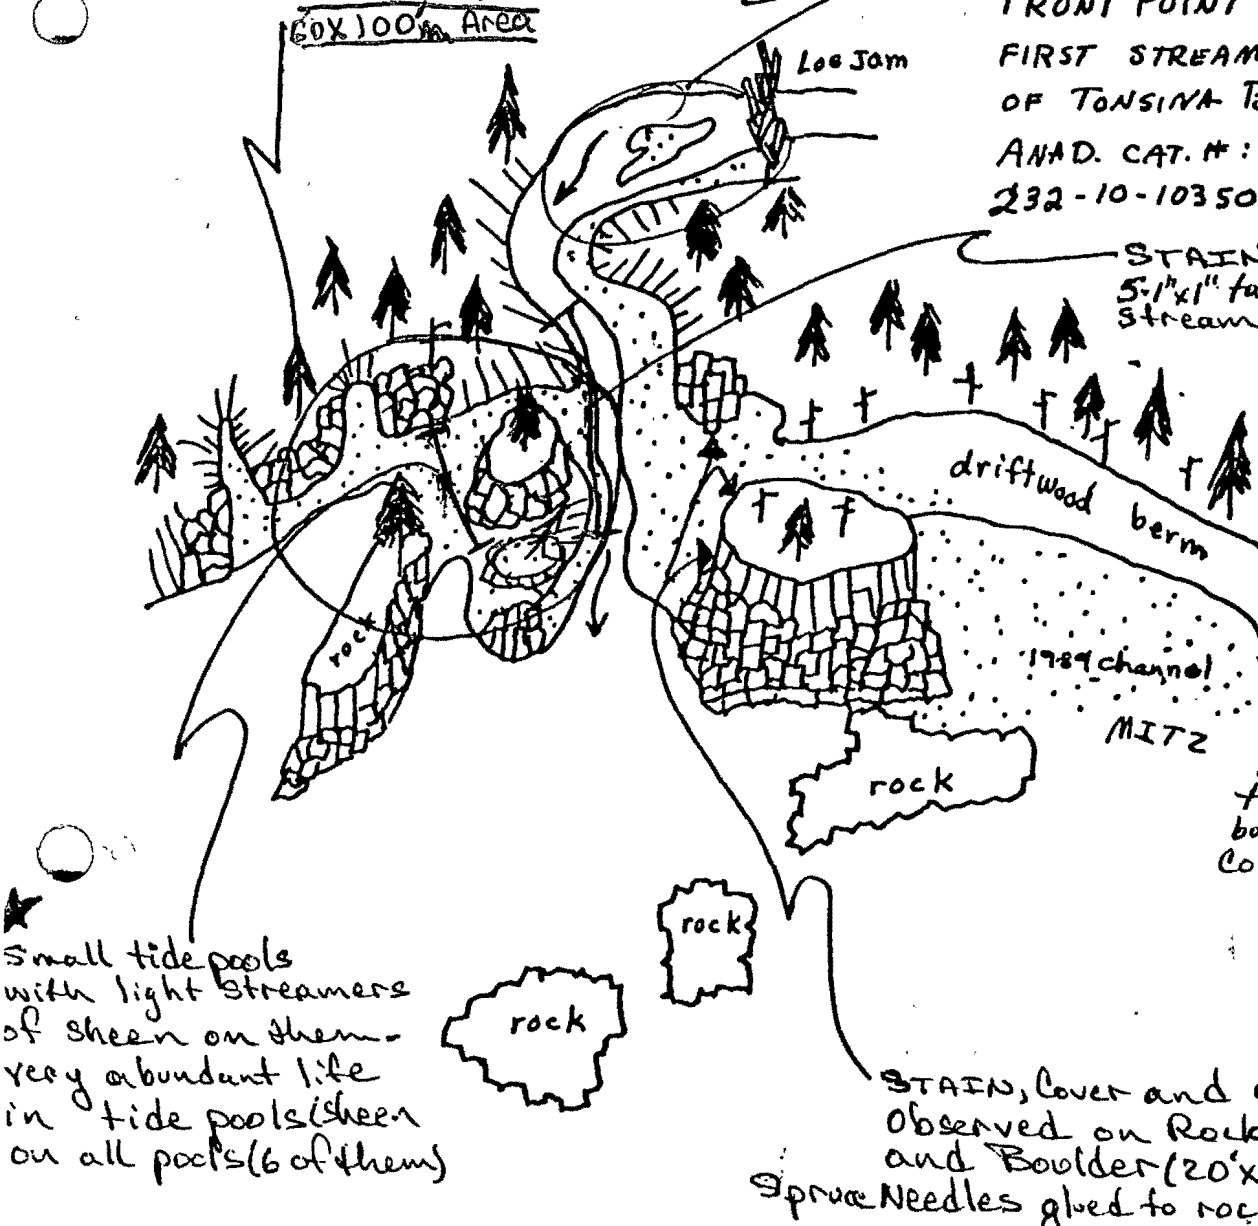 60X100'm Area
Log Jam
FRONT POINT
FIRST STREAM
OF TONSINA
ANAD. CAT. #:
232-10-10350
STAIN
5-1"x1"
Stream
driftwood berm
1989 channel
MITZ
rock
rock
rock
rock
bo
Co
Small tide pools
with light streamers
of sheen on them-
very abundant life
in tide pools (sheen
on all pools (6 of them)
STAIN, Cover and
Observed on Rock
and Boulder (20'x
Spruce Needles glued to roc